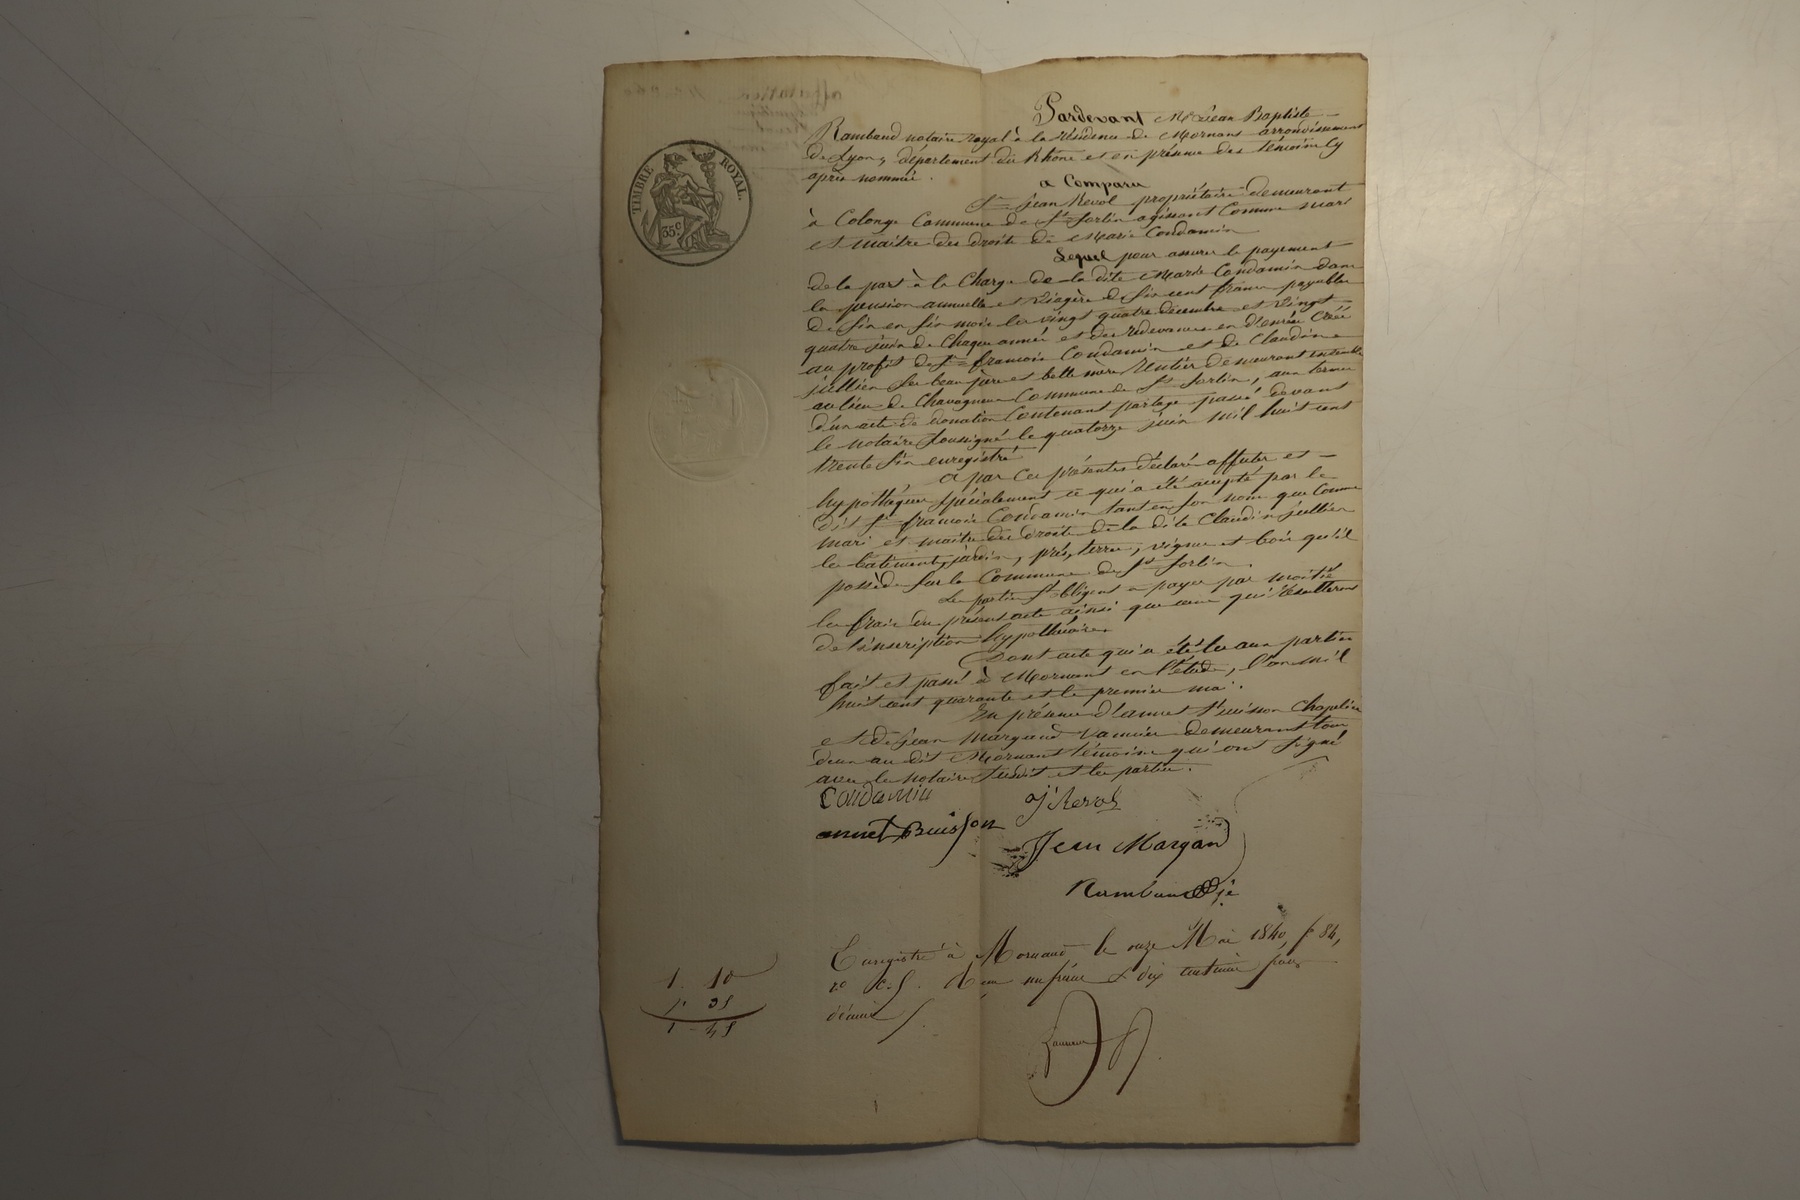 TIMBRE ROYAL
35 c
Pardevant Me Jean Baptiste
Rambaud notaire royal à la résidence de Mornant arrondissement
de Lyon, département du Rhône et en présence des témoins cy
après nommés.
a Comparu
Sr Jean Revol propriétaire demeurant
à Colonge Commune de St Sorlin agissant Comme mari
et maitre des droits de Marie Condamin
Lequel pour assurer le payement
de la part à la Charge de la dite Marie Condamin dans
la pension annuelle et viagère de six cent francs payables
de six en six mois les vingt quatre décembre et vingt
quatre juin de Chaque année et des redevances en denrées Créé
au profit de Sr françois Condamin et de Claudine
jullien ses beau père et belle mère rentiers demeurant ensemble
au lieu de Chavagneux Commune de St Sorlin, aux termes
d'un acte de donation Contenant partage passé devant
le notaire soussigné le quatorze juin mil huit cent
trente six enregistré
a par ces présentes déclaré affecter et
hypothéquer spécialement ce qui a été accepté par le
dit Sr françois Condamin tant en son nom que Comme
mari et maitre des droits de la dite Claudin jullien
les batiments, jardin, prés, terres, vignes et bois qu'il
possède sur la Commune de St Sorlin.
Les parties s'obligent a payer par moitié
les frais du présent acte ainsi que ceux qui résulteront
de l'inscription hypothécaire.
Dont acte qui a été lu aux parties
fait et passé à Mornant en l'étude, l'an mil
huit cent quarante et le premier mai.
En présence d'annet Buisson Chapelier
et de Jean Margand vannier demeurant tous
deux au dit Mornant témoins qui ont signé
avec le notaire susdit et les parties.
Condamin
j Revol
annet Buisson
Jean Margand
Rambaud
Enregistré à Mornant le onze Mai 1840, f° 84,
v° C. 5. Reçu un franc & dix centimes pour
décime
1. 10
35
1 - 45